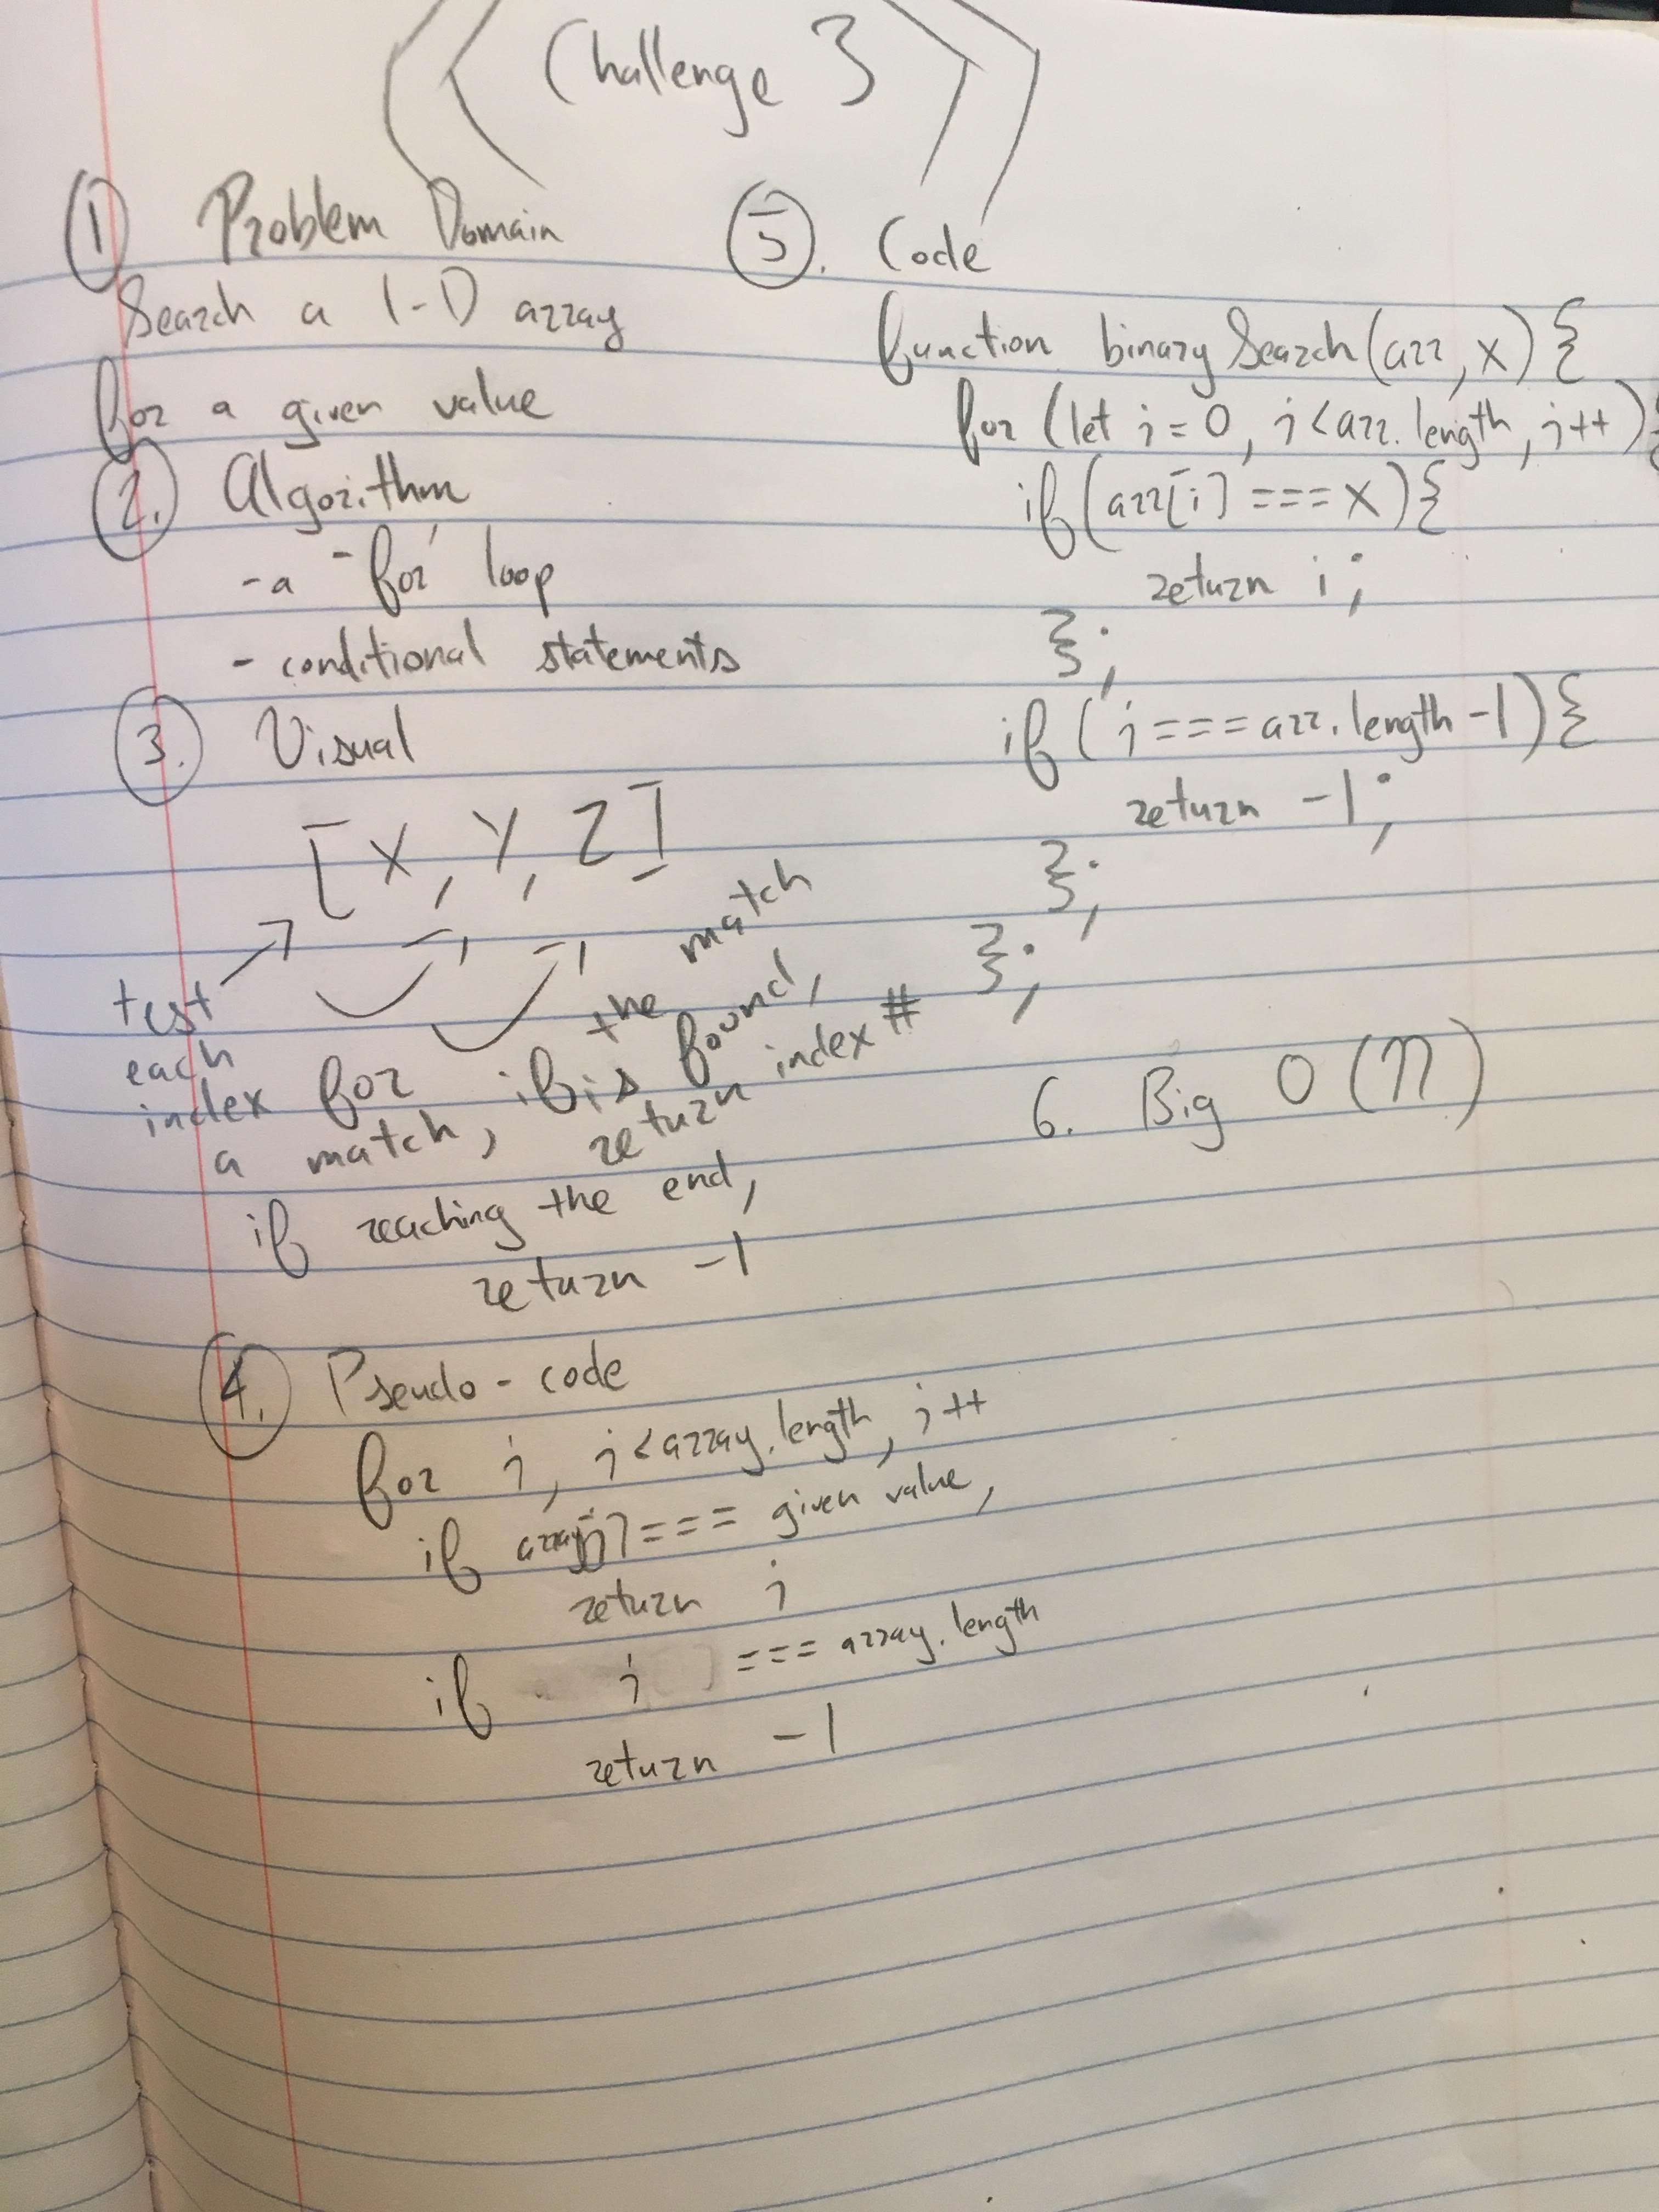 Challenge 3
1 Problem Domain
Search a 1-D array
for a given value
2. Algorithm
- a "for" loop
- conditional statements
3. Visual
[X, Y, Z]
test
each
index for
a match, if the match
is found,
return index #
if reaching the end,
return -1
4. Pseudo-code
for i, i < array.length, i++
if array[i] === given value,
return i
if i === array.length
return -1
5. Code
function binarySearch(arr, x) {
for (let i = 0, i < arr.length, i++) {
if (arr[i] === x) {
return i;
};
if (i === arr.length -1) {
return -1;
};
};
6. Big O (n)